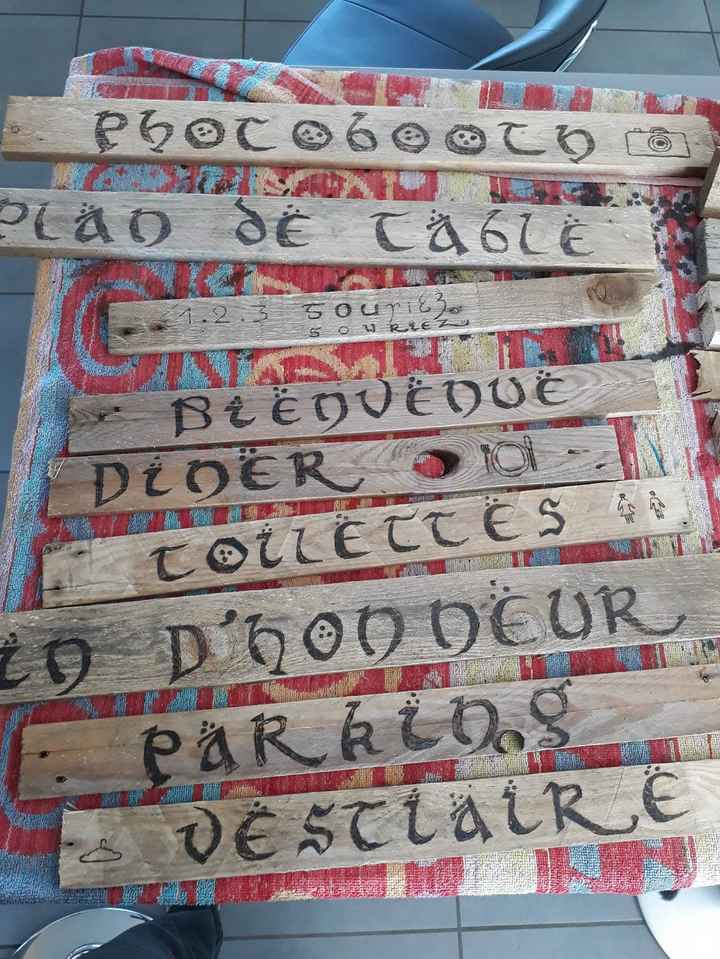 Photobooth
Plan de table
1.2.3 Souriez
SOURIEZ
Bienvenue
Diner
Toilettes
in D'honneur
Parking
Vestiaire